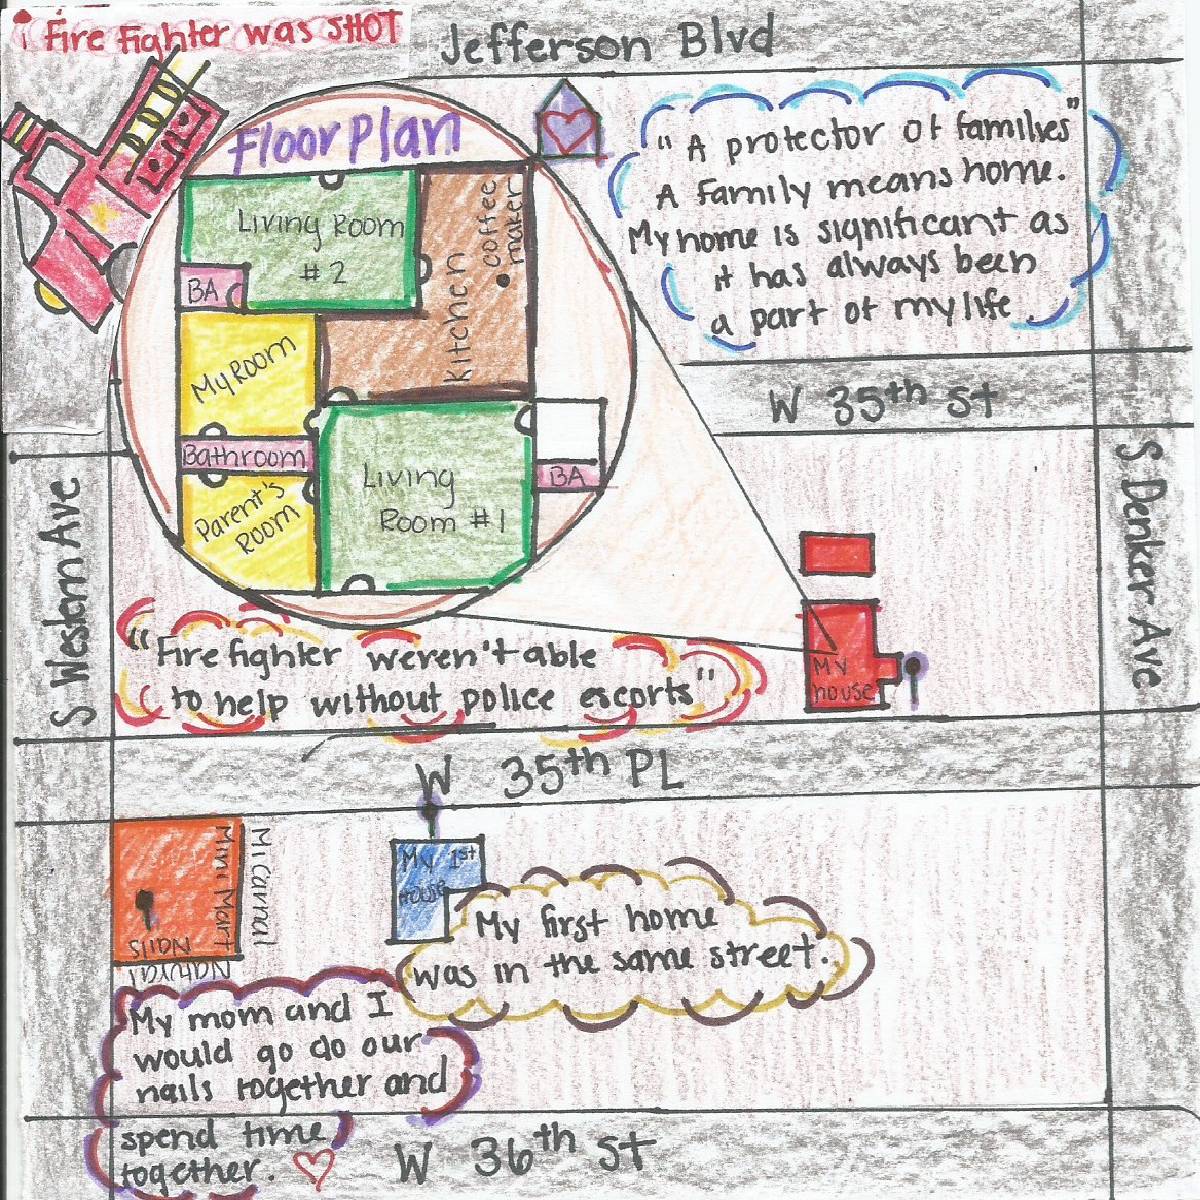 Fire Fighter was SHOT
Jefferson Blvd
Floor Plan
Living Room
#2
Kitchen
coffee
maker
BA
My Room
Bathroom
Parent's
Room
Living
Room #1
BA
"A protector of families"
A family means home.
My home is significant as
it has always been
a part of my life.
W 35th St
S Western Ave
S Denker Ave
My
house
"Fire fighter weren't able
to help without police escorts"
W 35th PL
Mi Carnal
Mini Mart
Natural
Nails
My 1st
House
My first home
was in the same street.
My mom and I
would go do our
nails together and
spend time
together.
W 36th St